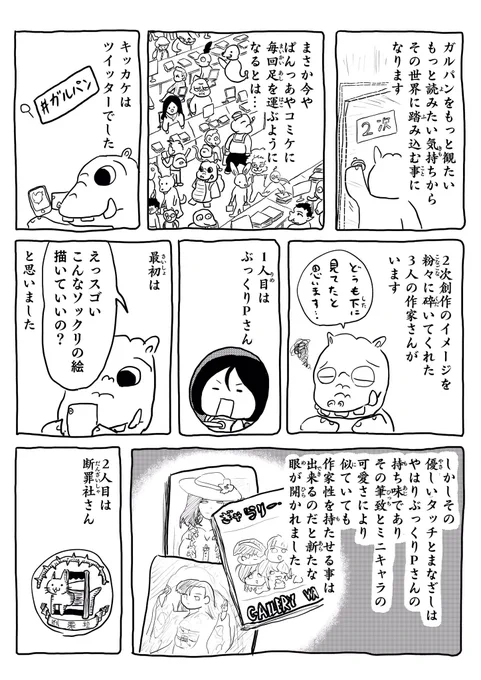 ガルパンをもっと観たい
もっと読みたい気持ちから
その世界に踏み込む事に
なります
2次
まさか今や
ぱんっあやコミケに
毎回足を運ぶように
なるとは…
キッカケは
ツイッターでした
#ガルパン
2次創作のイメージを
粉々に砕いてくれた
3人の作家さんが
います
どうも下に
見てたと
思います…
1人目は
ぶっくりPさん
最初は
えっスゴい
こんなソックリの絵
描いていいの?
と思いました
しかしその
優しいタッチとまなざしは
やはりぶっくりPさんの
持ち味であり
その筆致とミニキャラの
可愛さにより
似ていても
作家性を持たせる事は
出来るのだと新たな
眼が開かれました
ぎゃらりー
GALLERY
2人目は
断罪社さん